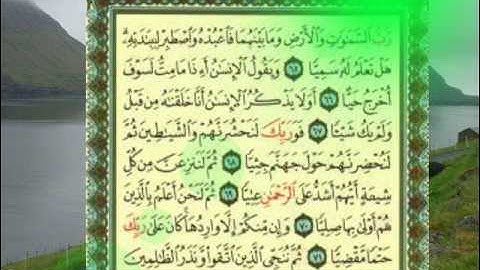 رَّبُّ السَّمَٰوَٰتِ وَالْأَرْضِ وَمَا بَيْنَهُمَا فَاعْبُدْهُ وَاصْطَبِرْ لِعِبَٰدَتِهِۦ
هَلْ تَعْلَمُ لَهُۥ سَمِيًّا ٦٥ وَيَقُولُ الْإِنسَٰنُ أَءِذَا مَا مِتُّ لَسَوْفَ
أُخْرَجُ حَيًّا ٦٦ أَوَلَا يَذْكُرُ الْإِنسَٰنُ أَنَّا خَلَقْنَٰهُ مِن قَبْلُ
وَلَمْ يَكُ شَيْـًٔا ٦٧ فَوَرَبِّكَ لَنَحْشُرَنَّهُمْ وَالشَّيَٰطِينَ ثُمَّ
لَنُحْضِرَنَّهُمْ حَوْلَ جَهَنَّمَ جِثِيًّا ٦٨ ثُمَّ لَنَنزِعَنَّ مِن كُلِّ
شِيعَةٍ أَيُّهُمْ أَشَدُّ عَلَى الرَّحْمَٰنِ عِتِيًّا ٦٩ ثُمَّ لَنَحْنُ أَعْلَمُ بِالَّذِينَ
هُمْ أَوْلَىٰ بِهَا صِلِيًّا ٧٠ وَإِن مِّنكُمْ إِلَّا وَارِدُهَا كَانَ عَلَىٰ رَبِّكَ
حَتْمًا مَّقْضِيًّا ٧١ ثُمَّ نُنَجِّي الَّذِينَ اتَّقَوا وَّنَذَرُ الظَّٰلِمِينَ